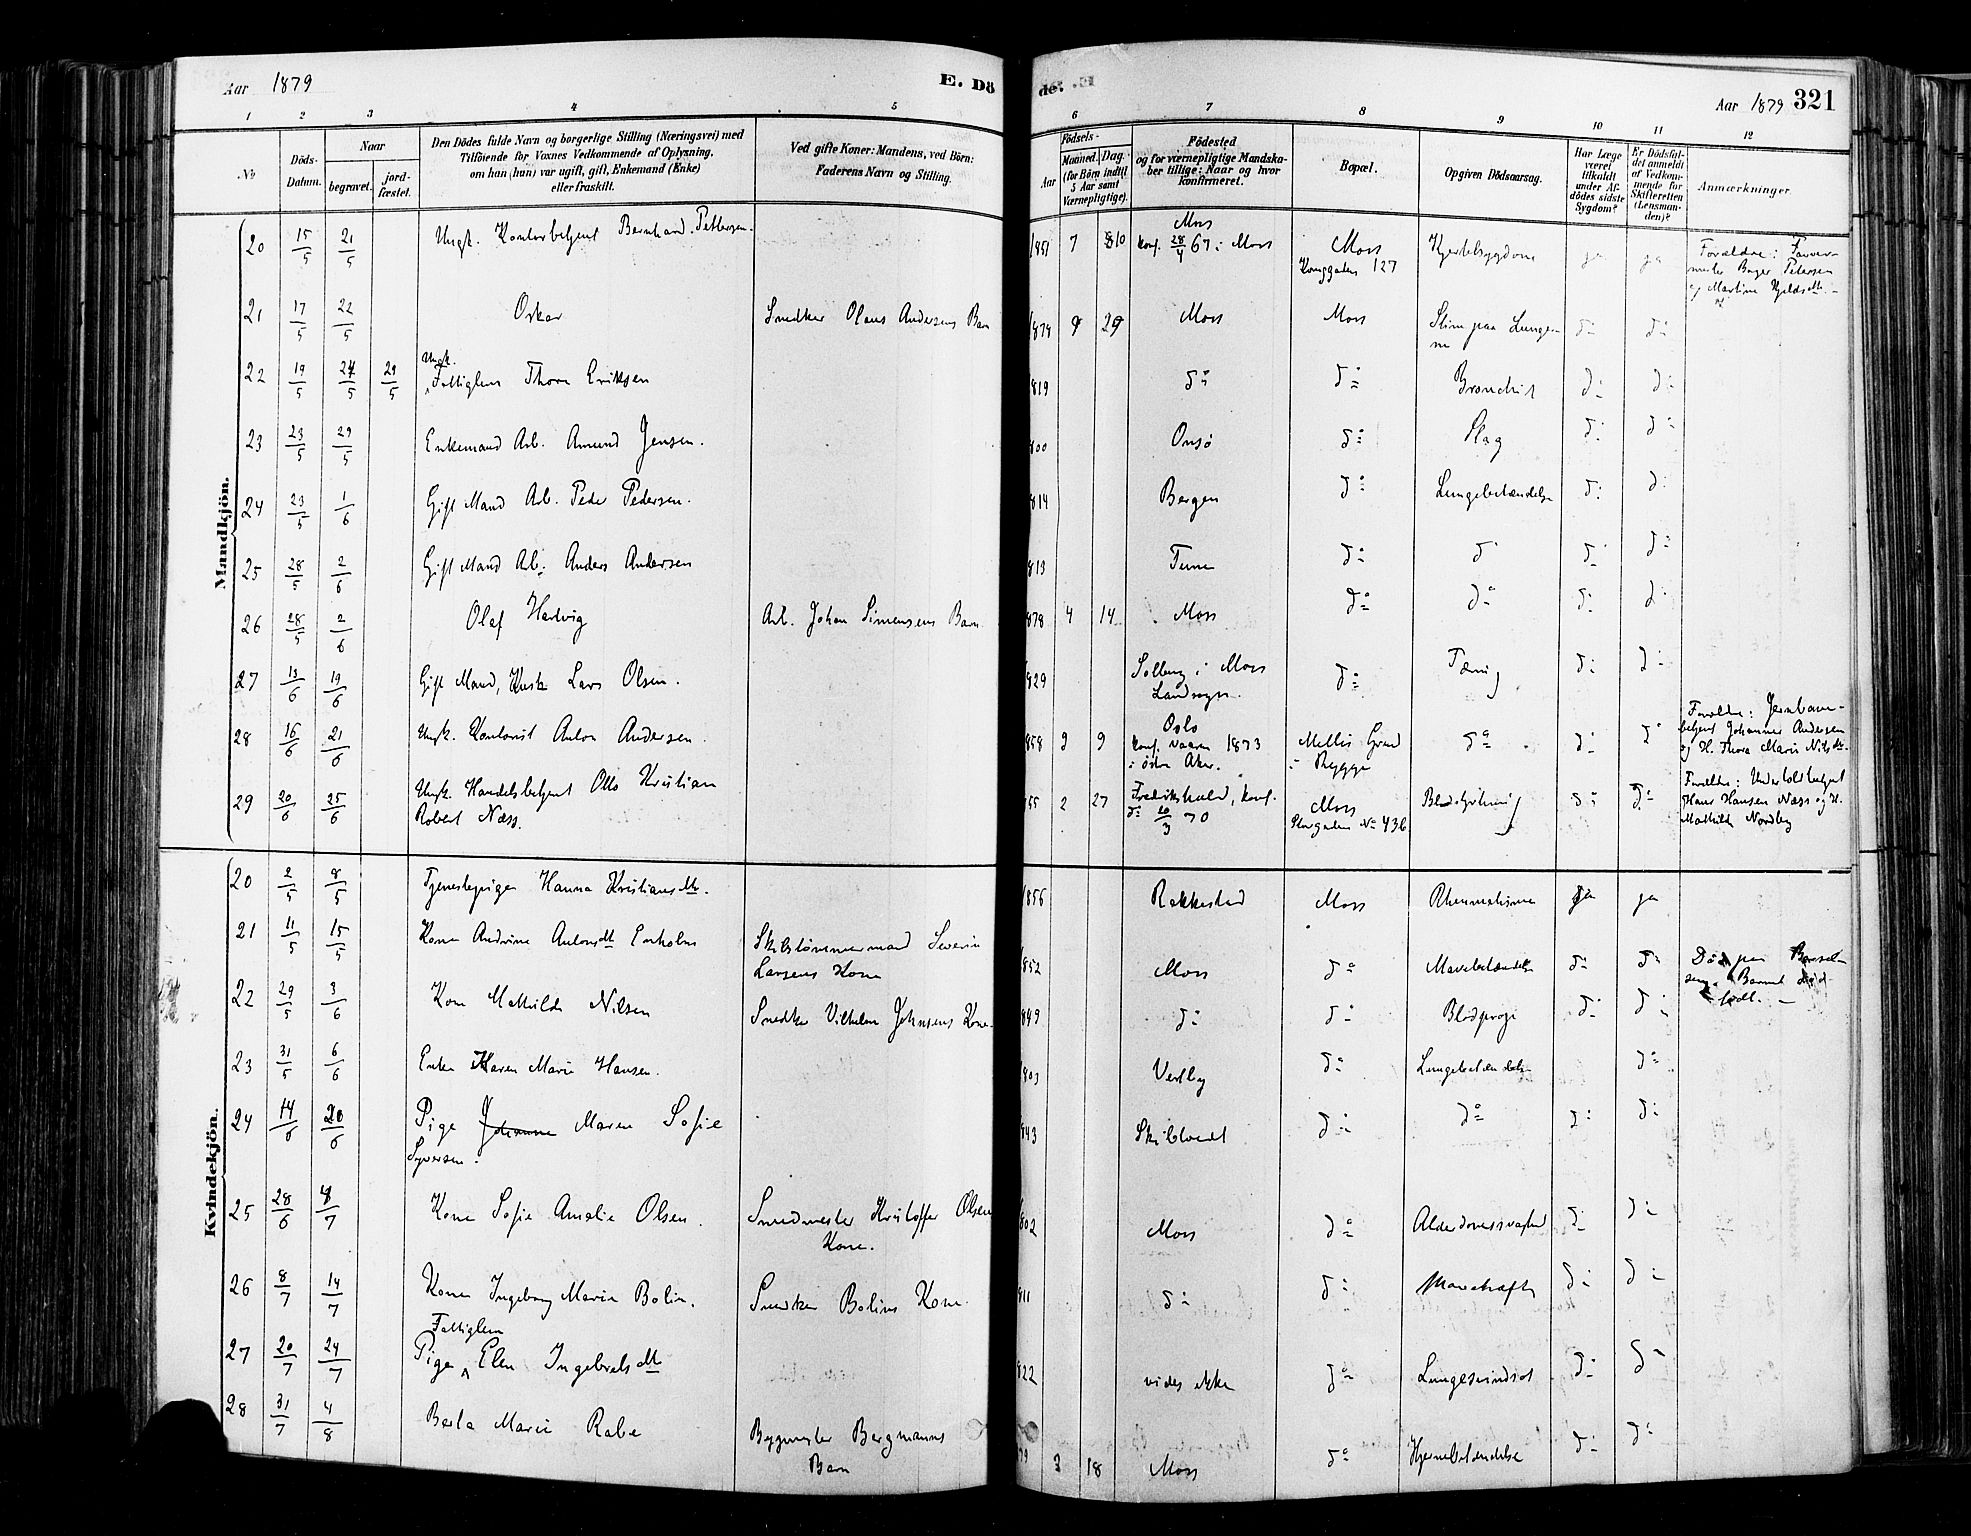 Aar 1879
E. Dö
de. E.
Aar 1879 321
1 2 3 4 5 6 7 8 9 10 11 12
No
Döds-
Datum.
Naar
begravet.
jord-
fæstet.
Den Dödes fulde Navn og borgerlige Stilling (Næringsvei) med
Tilföiende for Voxnes Vedkommende af Oplysning,
om han (hun) var ugift, gift, Enkemand (Enke)
eller fraskilt.
Ved gifte Koner: Mandens, ved Börn:
Faderens Navn og Stilling.
Födsels-
Aar
Maaned. Dag.
(for Börn indtil
5 Aar samt
Værnepligtige).
Födested
og for værnepligtige Mandska-
ber tillige: Naar og hvor
konfirmeret.
Bopæl.
Opgiven Dödsaarsag.
Har Læge
været
tilkaldt
under Af-
dödes sidste
Sygdom?
Er Dödsfal-
det anmeldt
af Vedkom-
mende for
Skifteretten
(Lensman-
den)?
Anmærkninger.
Mandkjön.
20 15/5 21/5 Ungk. Kontorbetjent Bernhard Pettersen. 1851 7 10 Moss
Konf. 28/4 67 i Moss
Moss
Konggaden 127
Hjertesygdom ja ja
Forældre: Farver-
mester Birger Petersen
og Martine
21 17/5 22/5 Oskar Snedker Olaus Andersens Barn 1879 29 Moss Moss Slim paa Lunger-
ne do do
22 19/5 24/5 29/5 Ungk.
Fattiglem Thore Eriksen 819 do do Bronchit do do
23 23/5 29/5 Enkemand Arb. Amund Jensen. 800 Onsö do Slag do do
24 23/5 1/6 Gift Mand Arb. Peder Pedersen. 814 Bergen do Lungebetændelse do do
25 28/5 2/6 Gift Mand Arb. Anders Andersen 813 Tune do do do do
26 28/5 2/6 Olaf Hartvig Arb. Johan Simensens Barn 878 4 14 Moss do do do do
27 13/6 19/6 Gift Mand, Kusk Lars Olsen. 829 Solberg i Moss
Landsogn. do Tæring do do
28 16/6 21/6 Ungk. Kontorist Anton Andersen. 858 2 9 Oslo
Konf. Vaaren 1873
i östre Aker.
Melløs Grund
i Rygge do do do
Forældre: Jernbane-
betjent Johannes Andersen
og H. Thora Marie Nilsdtr
29 20/6 25/6 Ungk. Handelsbetjent Otto Kristian
Robert Næss. 55 2 27 Fredrikshald, konf.
do 20/3 70
Moss
Storgaden No 436
Blodstyrtning do do
Forældre: UnderToldbetjent
Hans Hansen Næss og H.
Mathilde Nordby
Kvindekjön.
20 2/5 8/5 Tjenestepige Hanna Kristiansdtr. 856 Rakkestad Moss Rheumatisme ja ja
21 11/5 15/5 Kone Andrine Antonsdtr Enholm Skibstömmermand Severin
Larsens Kone 852 Moss do Mavebetændelse do do
Död paa Barsel-
seng, Barnet död-
födt. —
22 29/5 3/6 Kone Mathilde Nilsen Snedker Vilhelm Johnsens Kone 849 do do Blodprop do do
23 31/5 6/6 Enke Karen Marie Hansen. 803 Vestby do Lungebetændelse do
24 14/6 20/6 Pige Johanne Maren Sofie
Syversen. 843 Skibtvedt do do do do
25 28/6 4/7 Kone Sofie Amalie Olsen. Smedmester Kristoffer Olsens
Kone. 802 Moss do Alderdomssvaghed do do
26 8/7 14/7 Kone Ingeborg Marie Bolin. Snedker Bolins Kone. 811 do do Mavekræft do do
27 20/7 24/7 Fattiglem
Pige Elen Ingebretsdtr 822 vides ikke do Lungesvindsot do do
28 31/7 4/8 Berta Marie Rabe Bygmester Bergmanns
Barn 79 3 18 Moss do Hjernebetændelse do do